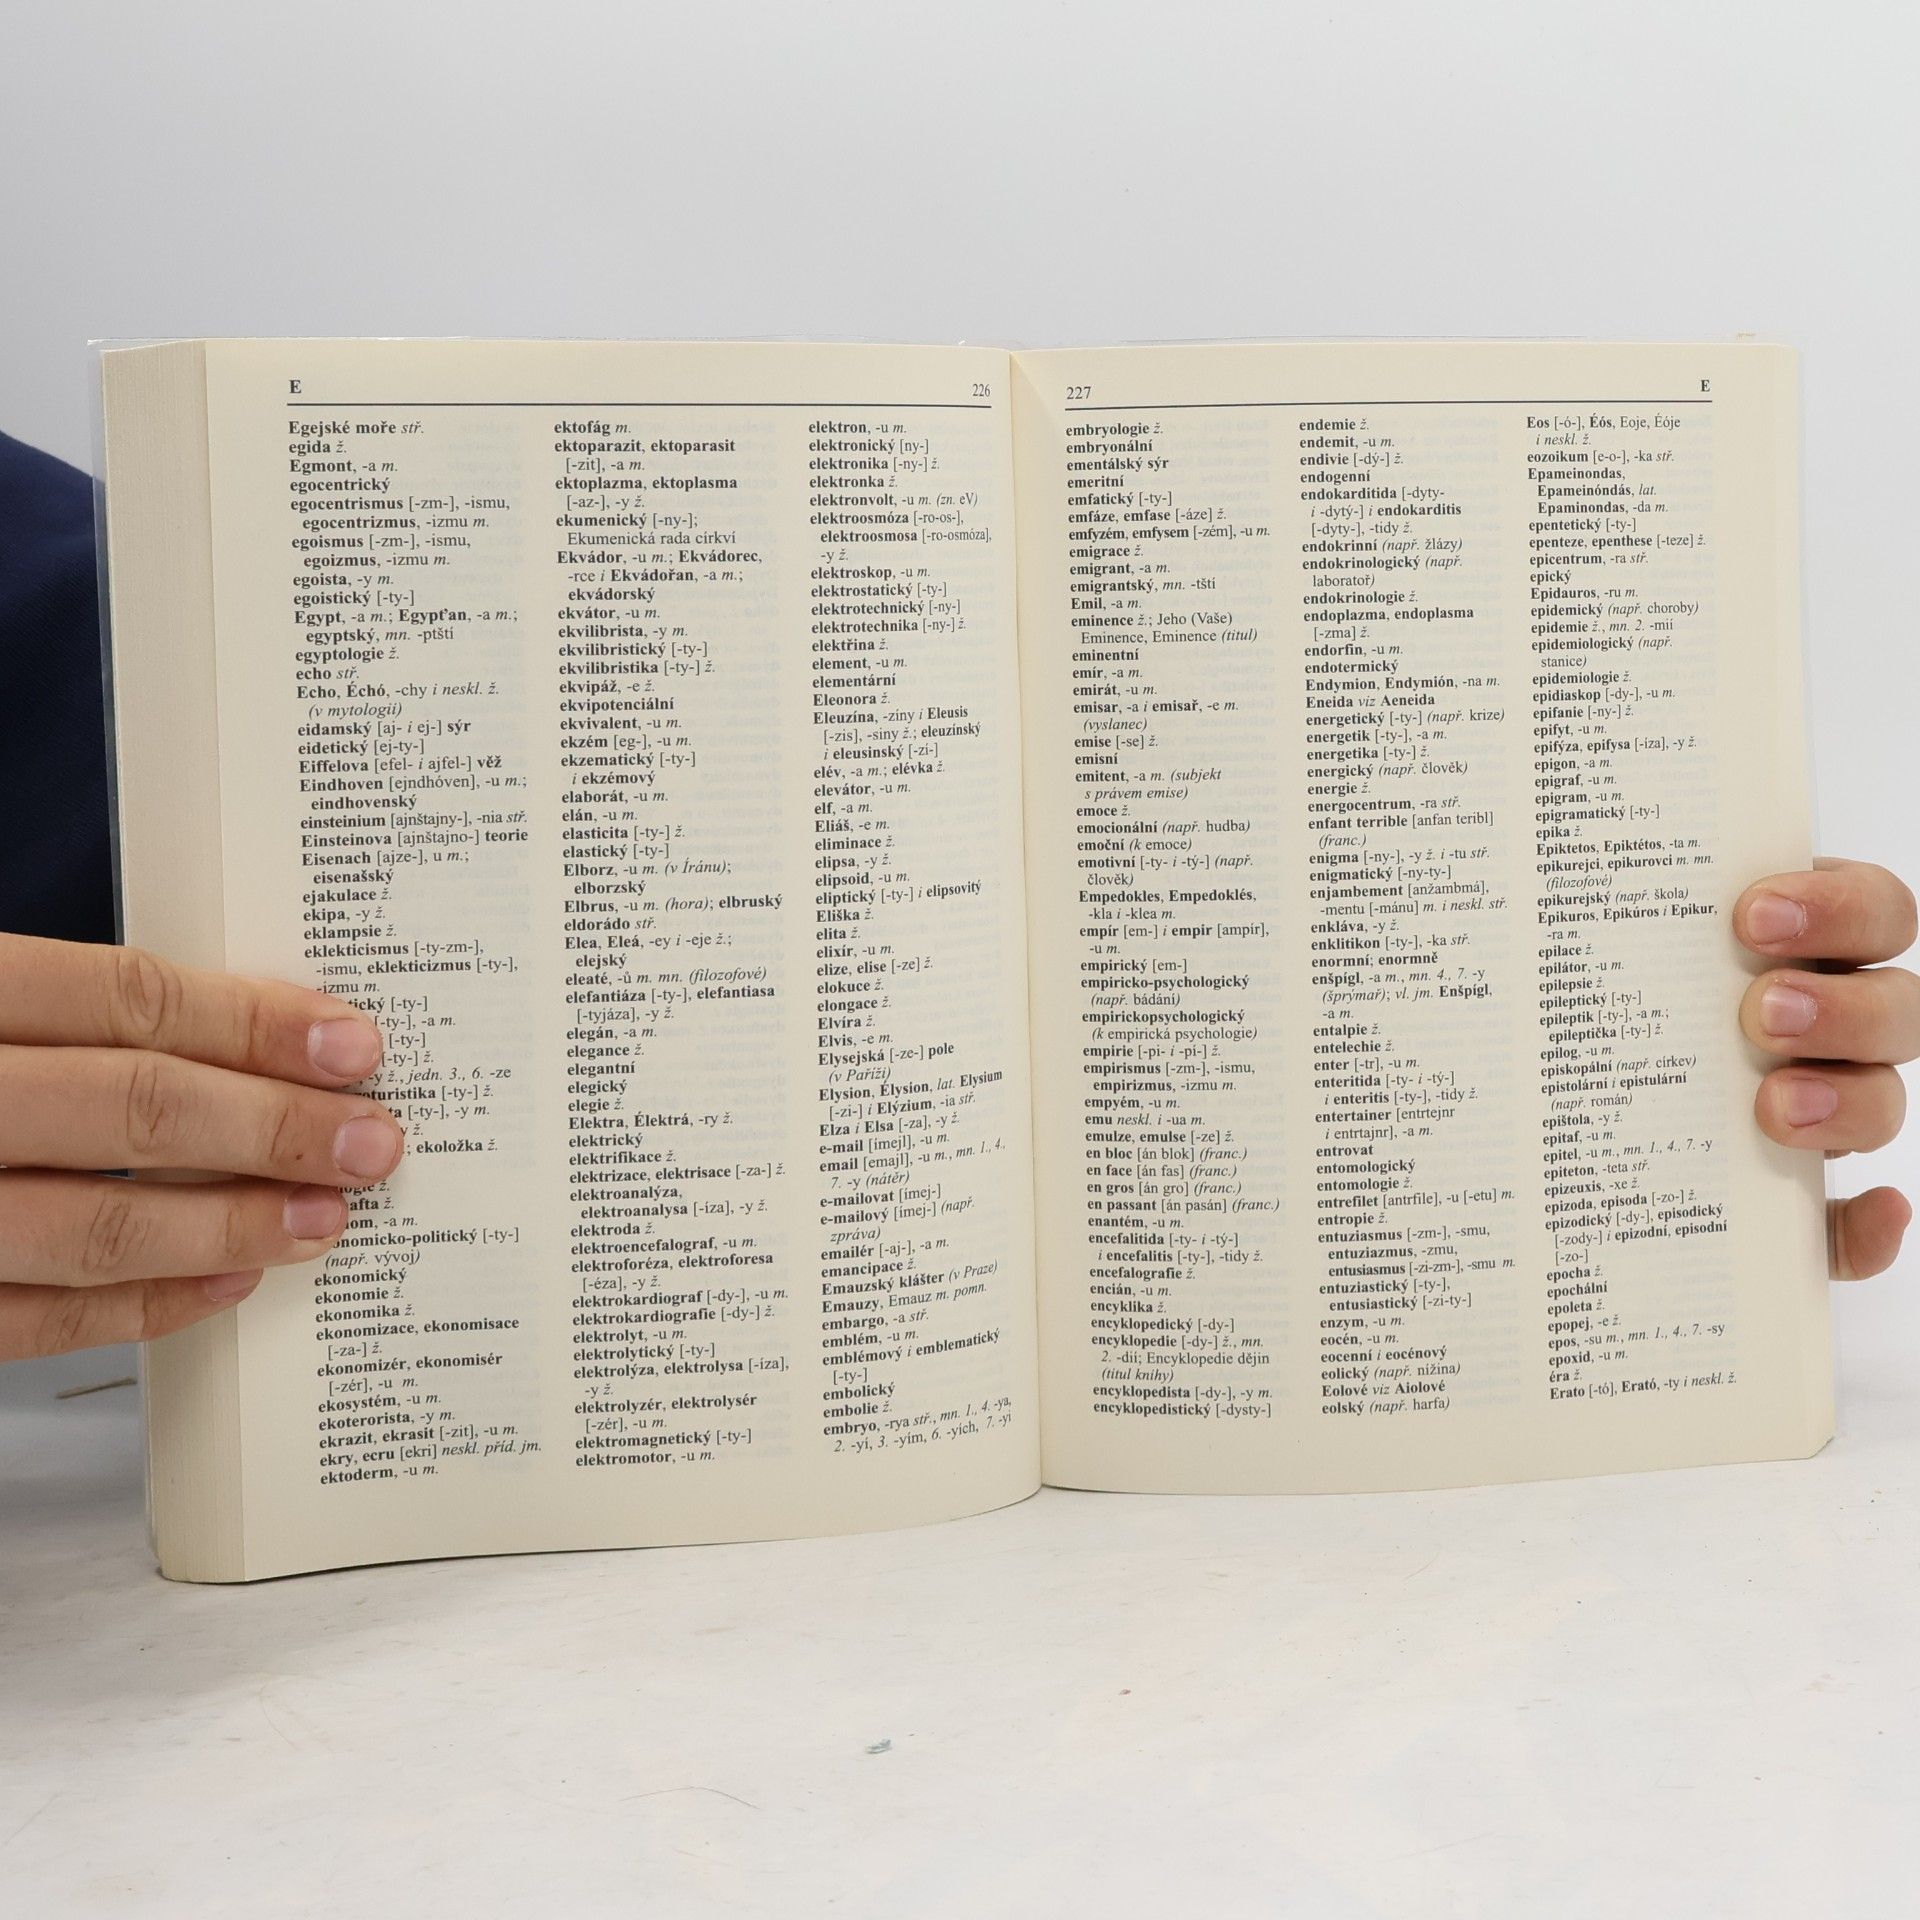 E
226
Egejské moře stř.
egida ž.
Egmont, -a m.
egocentrický
egocentrismus [-zm-], -ismu,
egocentrizmus, -izmu m.
egoismus [-zm-], -ismu,
egoizmus, -izmu m.
egoista, -y m.
egoistický [-ty-]
Egypt, -a m.; Egypťan, -a m.;
egyptský, mn. -ptští
egyptologie ž.
echo stř.
Echo, Échó, -chy i neskl. ž.
(v mytologii)
eidamský [aj- i ej-] sýr
eidetický [ej-ty-]
Eiffelova [efel- i ajfel-] věž
Eindhoven [ejndhóven], -u m.;
eindhovenský
einsteinium [ajnštajny-], -nia stř.
Einsteinova [ajnštajno-] teorie
Eisenach [ajze-], u m.;
eisenašský
ejakulace ž.
ekipa, -y ž.
eklampsie ž.
eklekticismus [-ty-zm-],
-ismu, eklekticizmus [-ty-],
-izmu m.
[-ty-]
[-ty-], -a m.
[-ty-]
[-ty-] ž.
-y ž., jedn. 3., 6. -ze
[-ty-] ž.
[-ty-], -y m.
ž.
; ekoložka ž.
ž.
ž.
-a m.
[-ty-]
(např. vývoj)
ekonomický
ekonomie ž.
ekonomika ž.
ekonomizace, ekonomisace
[-za-] ž.
ekonomizér, ekonomisér
[-zér], -u m.
ekosystém, -u m.
ekoterorista, -y m.
ekrazit, ekrasit [-zit], -u m.
ekry, ecru [ekri] neskl. příd. jm.
ektoderm, -u m.
ektofág m.
ektoparazit, ektoparasit
[-zit], -a m.
ektoplazma, ektoplasma
[-az-], -y ž.
ekumenický [-ny-];
Ekumenická rada církví
Ekvádor, -u m.; Ekvádorec,
-rce i Ekvádořan, -a m.;
ekvádorský
ekvátor, -u m.
ekvilibrista, -y m.
ekvilibristický [-ty-]
ekvilibristika [-ty-] ž.
ekvipáž, -e ž.
ekvipotenciální
ekvivalent, -u m.
ekzém [eg-], -u m.
ekzematický [-ty-]
i ekzémový
elaborát, -u m.
elán, -u m.
elasticita [-ty-] ž.
elastický [-ty-]
Elborz, -u m. (v Íránu);
elborzský
Elbrus, -u m. (hora); elbruský
eldorádo stř.
Elea, Eleá, -ey i -eje ž.;
elejský
eleaté, -ů m. mn. (filozofové)
elefantiáza [-ty-], elefantiasa
[-tyjáza], -y ž.
elegán, -a m.
elegance ž.
elegantní
elegický
elegie ž.
Elektra, Élektrá, -ry ž.
elektrický
elektrifikace ž.
elektrizace, elektrisace [-za-] ž.
elektroanalýza,
elektroanalysa [-íza], -y ž.
elektroda ž.
elektroencefalograf, -u m.
elektroforéza, elektroforesa
[-éza], -y ž.
elektrokardiograf [-dy-], -u m.
elektrokardiografie [-dy-] ž.
elektrolyt, -u m.
elektrolytický [-ty-]
elektrolýza, elektrolysa [-íza],
-y ž.
elektrolyzér, elektrolysér
[-zér], -u m.
elektromagnetický [-ty-]
elektromotor, -u m.
elektron, -u m.
elektronický [ny-]
elektronika [-ny-] ž.
elektronka ž.
elektronvolt, -u m. (zn. eV)
elektroosmóza [-ro-os-],
elektroosmosa [-ro-osmóza],
-y ž.
elektroskop, -u m.
elektrostatický [-ty-]
elektrotechnický [-ny-]
elektrotechnika [-ny-] ž.
elektřina ž.
element, -u m.
elementární
Eleonora ž.
Eleuzína, -zíny i Eleusis
[-zis], -siny ž.; eleuzinský
i eleusinský [-zi-]
elév, -a m.; elévka ž.
elevátor, -u m.
elf, -a m.
Eliáš, -e m.
eliminace ž.
elipsa, -y ž.
elipsoid, -u m.
eliptický [-ty-] i elipsovitý
Eliška ž.
elita ž.
elixír, -u m.
elize, elise [-ze] ž.
elokuce ž.
elongace ž.
Elvíra ž.
Elvis, -e m.
Elysejská [-ze-] pole
(v Paříži)
Elysion, Élysion, lat. Elysium
[-zi-] i Elýzium, -ia stř.
Elza i Elsa [-za], -y ž.
e-mail [ímejl], -u m.
email [emajl], -u m., mn. 1., 4.,
7. -y (nátěr)
e-mailovat [ímej-]
e-mailový [ímej-] (např.
zpráva)
emailér [-aj-], -a m.
emancipace ž.
Emauzský klášter (v Praze)
Emauzy, Emauz m. pomn.
embargo, -a stř.
emblém, -u m.
emblémový i emblematický
[-ty-]
embolický
embolie ž.
embryo, -rya stř., mn. 1., 4. -ya,
2. -yí, 3. -yím, 6. -yích, 7. -yi
227
E
embryologie ž.
embryonální
ementálský sýr
emeritní
emfatický [-ty-]
emfáze, emfase [-áze] ž.
emfyzém, emfysem [-zém], -u m.
emigrace ž.
emigrant, -a m.
emigrantský, mn. -tští
Emil, -a m.
eminence ž.; Jeho (Vaše)
Eminence, Eminence (titul)
eminentní
emír, -a m.
emirát, -u m.
emisar, -a i emisař, -e m.
(vyslanec)
emise [-se] ž.
emisní
emitent, -a m. (subjekt
s právem emise)
emoce ž.
emocionální (např. hudba)
emoční (k emoce)
emotivní [-ty- i -tý-] (např.
člověk)
Empedokles, Empedoklés,
-kla i -klea m.
empír [em-] i empir [ampír],
-u m.
empirický [em-]
empiricko-psychologický
(např. bádání)
empirickopsychologický
(k empirická psychologie)
empirie [-pi- i -pí-] ž.
empirismus [-zm-], -ismu,
empirizmus, -izmu m.
empyém, -u m.
emu neskl. i -ua m.
emulze, emulse [-ze] ž.
en bloc [án blok] (franc.)
en face [án fas] (franc.)
en gros [án gro] (franc.)
en passant [án pasán] (franc.)
enantém, -u m.
encefalitida [-ty- i -tý-]
i encefalitis [-ty-], -tidy ž.
encefalografie ž.
encián, -u m.
encyklika ž.
encyklopedický [-dy-]
encyklopedie [-dy-] ž., mn.
2. -dií; Encyklopedie dějin
(titul knihy)
encyklopedista [-dy-], -y m.
encyklopedistický [-dysty-]
endemie ž.
endemit, -u m.
endivie [-dý-] ž.
endogenní
endokarditida [-dyty-
i -dytý-] i endokarditis
[-dyty-], -tidy ž.
endokrinní (např. žlázy)
endokrinologický (např.
laboratoř)
endokrinologie ž.
endoplazma, endoplasma
[-zma] ž.
endorfin, -u m.
endotermický
Endymion, Endymión, -na m.
Eneida viz Aeneida
energetický [-ty-] (např. krize)
energetik [-ty-], -a m.
energetika [-ty-] ž.
energický (např. člověk)
energie ž.
energocentrum, -ra stř.
enfant terrible [anfan teribl]
(franc.)
enigma [-ny-], -y ž. i -tu stř.
enigmatický [-ny-ty-]
enjambement [anžambmá],
-mentu [-mánu] m. i neskl. stř.
enkláva, -y ž.
enklitikon [-ty-], -ka stř.
enormní; enormně
enšpígl, -a m., mn. 4., 7. -y
(šprýmař); vl. jm. Enšpígl,
-a m.
entalpie ž.
entelechie ž.
enter [-tr], -u m.
enteritida [-ty- i -tý-]
i enteritis [-ty-], -tidy ž.
entertainer [entrtejnr
i entrtajnr], -a m.
entrovat
entomologický
entomologie ž.
entrefilet [antrfile], -u [-etu] m.
entropie ž.
entuziasmus [-zm-], -smu,
entuziazmus, -zmu,
entusiasmus [-zi-zm-], -smu m.
entuziastický [-ty-],
entusiastický [-zi-ty-]
enzym, -u m.
eocén, -u m.
eocenní i eocénový
eolický (např. nížina)
Eolové viz Aiolové
eolský (např. harfa)
Eos [-ó-], Éós, Eoje, Éóje
i neskl. ž.
eozoikum [e-o-], -ka stř.
Epameinondas,
Epameinóndás, lat.
Epaminondas, -da m.
epentetický [-ty-]
epenteze, epenthese [-teze] ž.
epicentrum, -ra stř.
epický
Epidauros, -ru m.
epidemický (např. choroby)
epidemie ž., mn. 2. -mií
epidemiologický (např.
stanice)
epidemiologie ž.
epidiaskop [-dy-], -u m.
epifanie [-ny-] ž.
epifyt, -u m.
epifýza, epifysa [-íza], -y ž.
epigon, -a m.
epigraf, -u m.
epigram, -u m.
epigramatický [-ty-]
epika ž.
Epiktetos, Epiktétos, -ta m.
epikurejci, epikurovci m. mn.
(filozofové)
epikurejský (např. škola)
Epikuros, Epikúros i Epikur,
-ra m.
epilace ž.
epilátor, -u m.
epilepsie ž.
epileptický [-ty-]
epileptik [-ty-], -a m.;
epileptička [-ty-] ž.
epilog, -u m.
episkopální (např. církev)
epistolární i epistulární
(např. román)
epištola, -y ž.
epitaf, -u m.
epitel, -u m., mn. 1., 4., 7. -y
epiteton, -teta stř.
epizeuxis, -xe ž.
epizoda, episoda [-zo-] ž.
epizodický [-dy-], episodický
[-zody-] i epizodní, episodní
[-zo-]
epocha ž.
epochální
epoleta ž.
epopej, -e ž.
epos, -su m., mn. 1., 4., 7. -sy
epoxid, -u m.
éra ž.
Erato [-tó], Erató, -ty i neskl. ž.